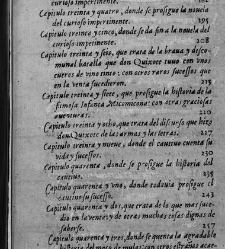 curioso impertinente. 182
Capitulo treinta y quatro, donde se prosigue la nouela
del curioso impertinente. 195
Capitulo treinta y cinco, donde se da fin a la nouela del
curioso impertinente. 208
Capitulo treinta y seis, que trata de la braua y desco-
munal batalla que don Quixote tuuo con vnos
cueros de vino tinto: con otros raros sucessos que
en la venta sucedieron.
Capitulo treinta y siete, que prosigue la historia de la
famosa Infanta Micomicona: con otras graciosas
auenturas. 210
Capitulo treinta y ocho, que trata del discurso que hizo
don Quixote de las armas y las letras. 217
Capitulo treinta y nueue, donde el cautiuo cuenta su
vida y sucessos. 230
Capitulo quarenta, donde se prosigue la historia del
cautiuo. 235
Capitulo quarenta y vno, donde todauia prosigue el
cautiuo su sucesso. 243
Capitulo quarenta y dos, que trata de lo que mas suce-
dio en la venta: y de otras muchas cosas dignas de
saberse. 257
Capitulo quarenta y tres, donde se quenta la agradable
historia del moço de mulas: con otros estraños acae-